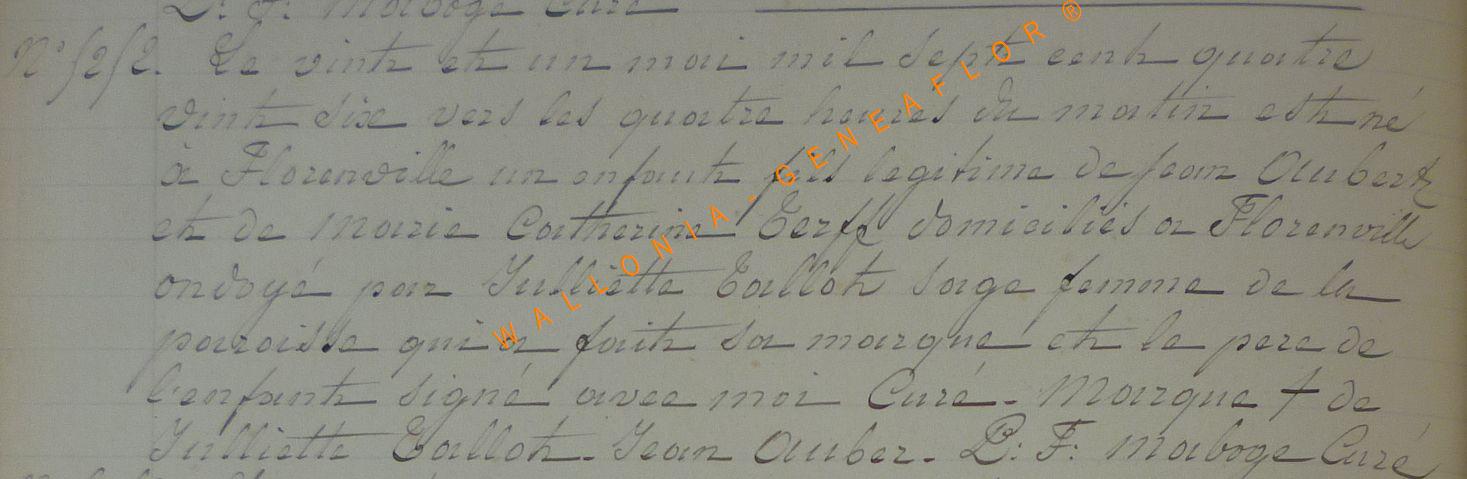 P. F. Maboge Curé
N° 5252. Le vint et un mai mil sept cent quatre
vint six vers les quatre heures du matin est né
à Florenville un enfant fils legitime de Jean Aubert
et de Marie Catherine Terff domiciliés a Florenville
ondoyé par Julliette Tallot sage femme de la
paroisse qui a fait sa marque et le pere de
l'enfant signé avec moi Curé. Marque † de
Julliette Tallot. Jean Auber. P. F. Maboge Curé
WALLONIA-GENEAFLOR ®